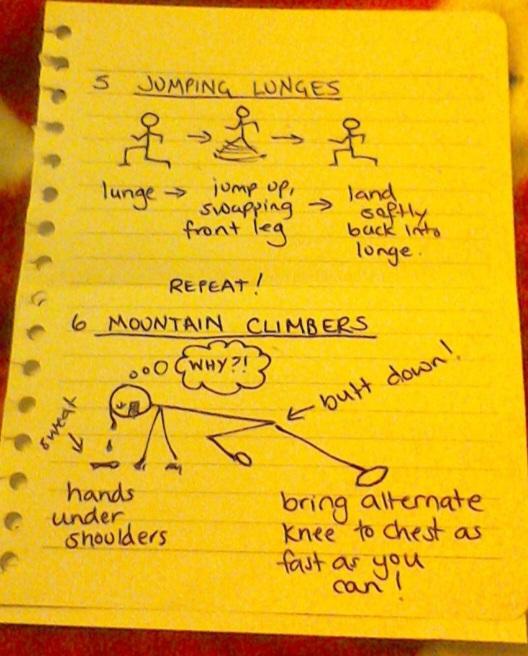 5 JUMPING LUNGES
lunge → jump up, swapping front leg → land softly back into lunge.
REPEAT!
6 MOUNTAIN CLIMBERS
WHY?!
butt down!
sweat
hands
under
shoulders
bring alternate
knee to chest as
fast as you
can!